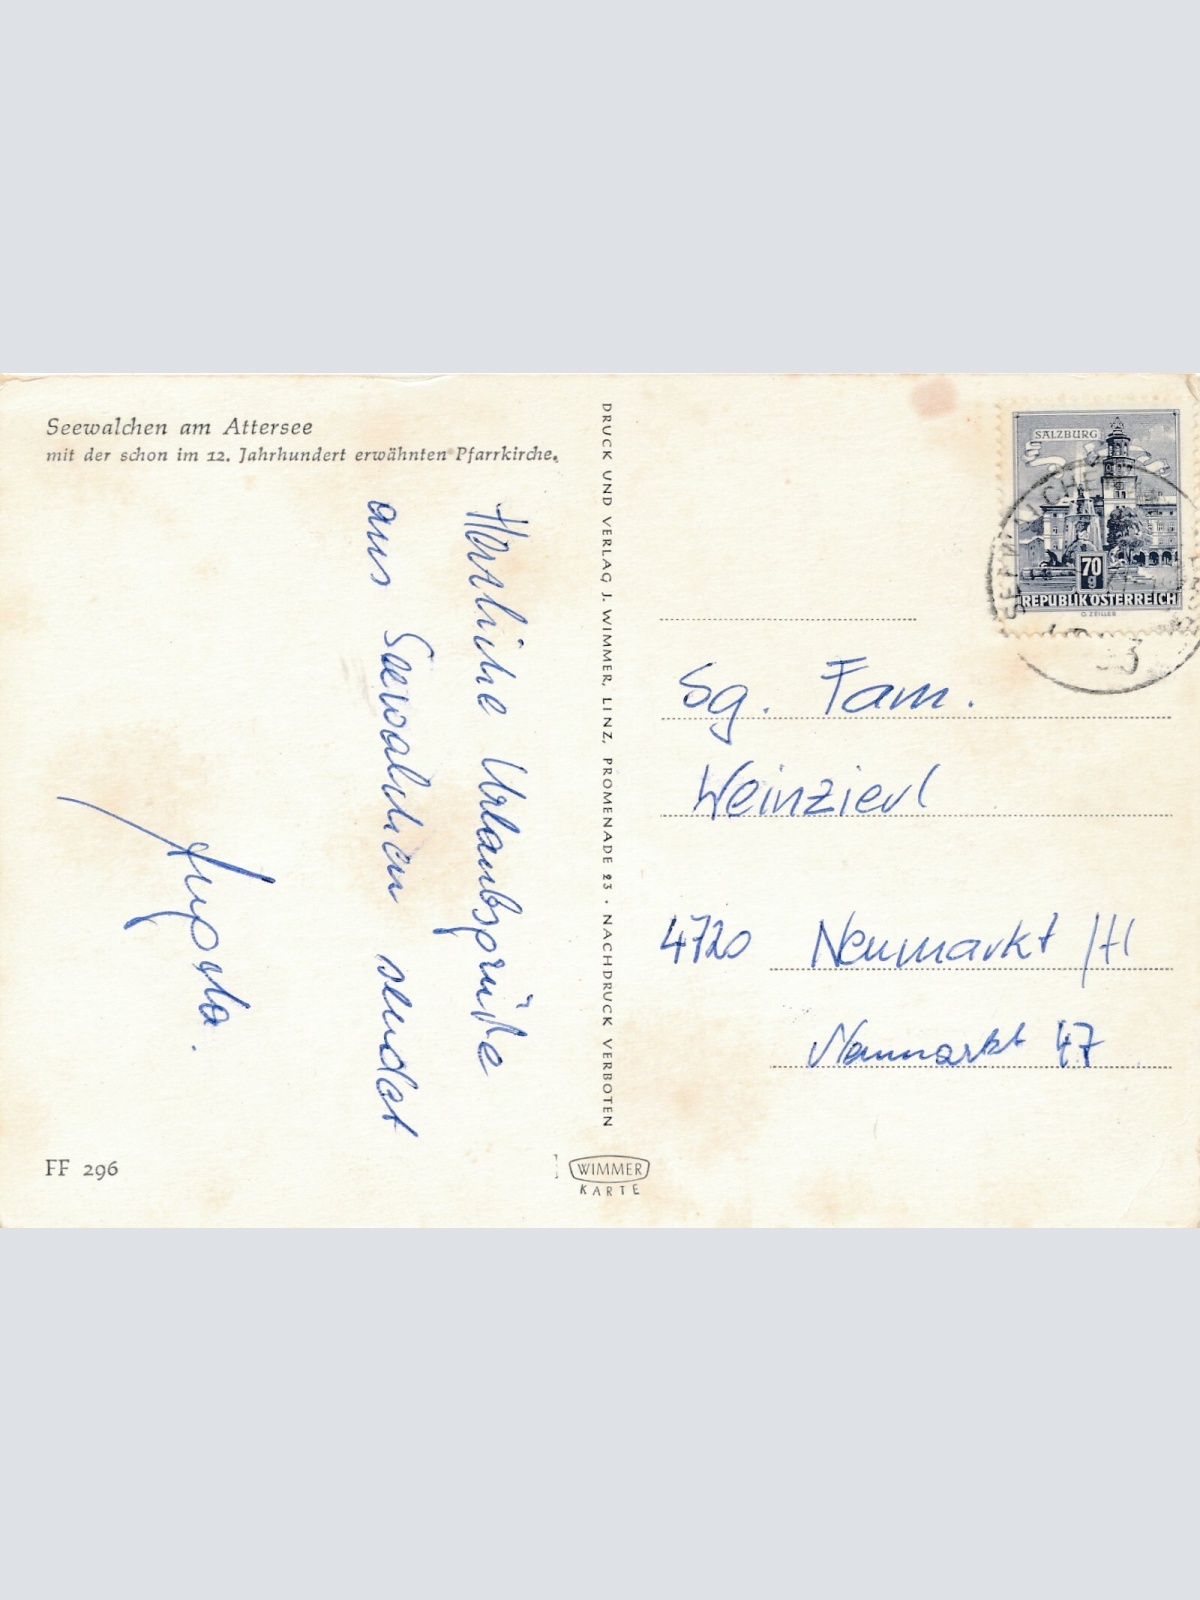 Seewalchen am Attersee
mit der schon im 12. Jahrhundert erwähnten Pfarrkirche.
Herzliche Urlaubsgrüße
aus Seewalchen sendet
FF 296
DRUCK UND VERLAG J. WIMMER, LINZ, PROMENADE 23 · NACHDRUCK VERBOTEN
WIMMER
KARTE
SALZBURG
70
g
REPUBLIK ÖSTERREICH
O. ZEILLER
SEEWALCHEN
3
Sg. Fam.
Weinzierl
4720 Neumarkt /H
Neumarkt 47